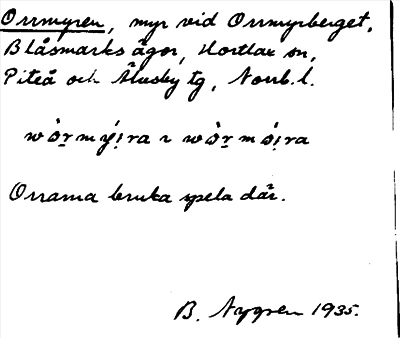 Orrmyren, myr vid Orrmyrberget,
Blåsmarks ägor, Hortlax sn,
Piteå och Älvsby tg, Norrb. l.
wȯ́r̤mýi̤ra ı wȯ́r̤mȯ́i̤ra
Orrama bruka spela där.
B. Nygren 1935.